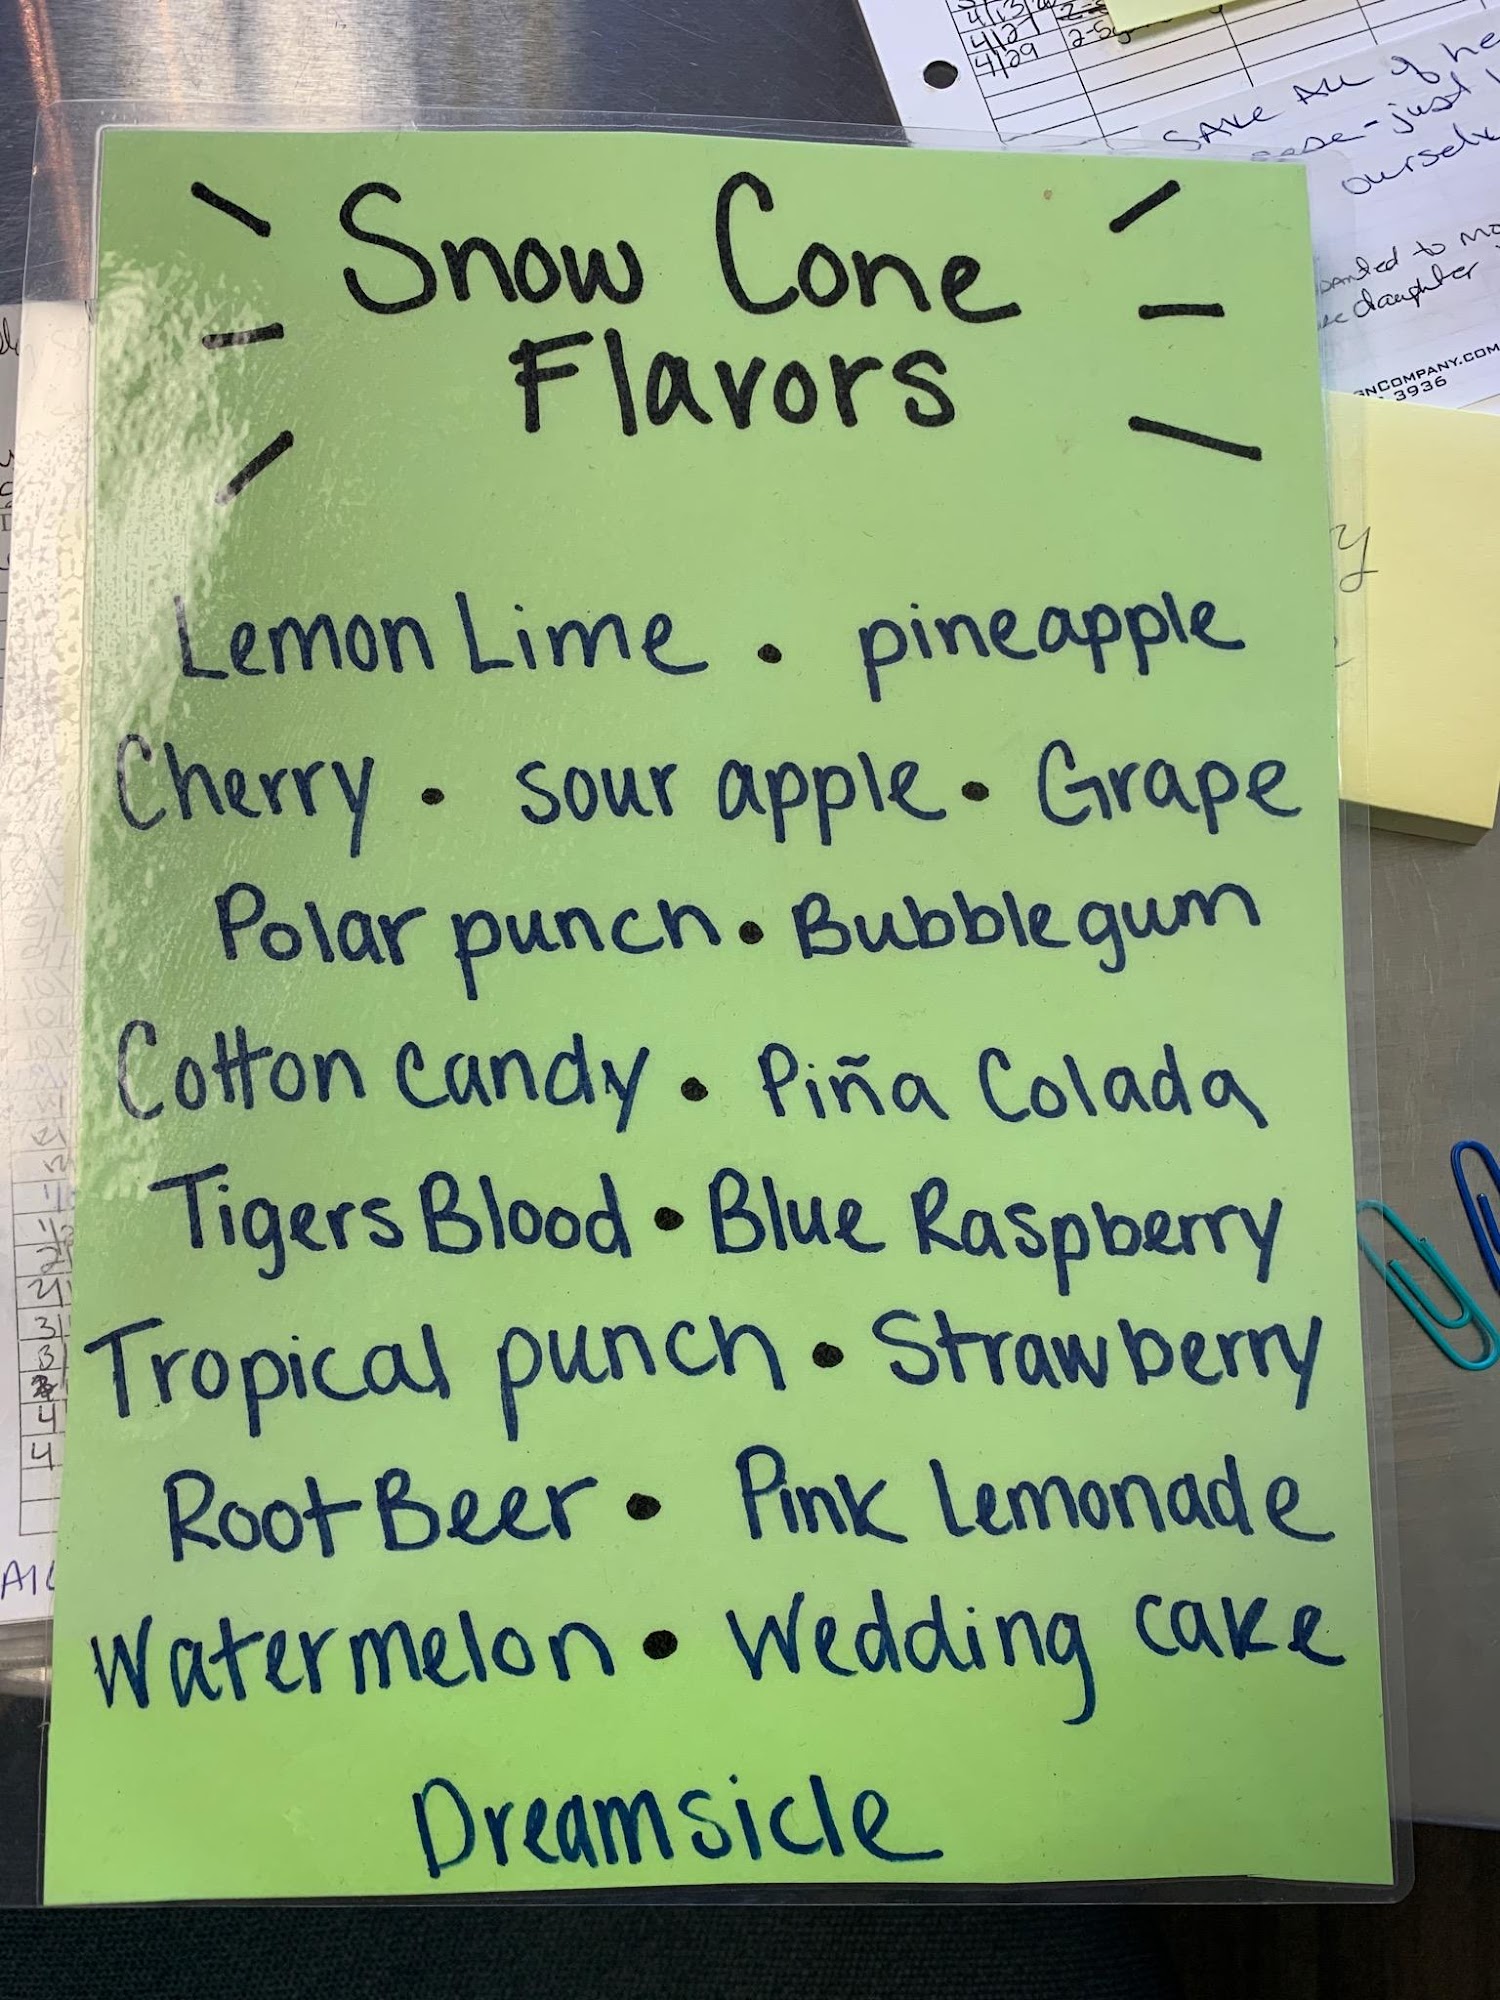 Snow Cone
Flavors
Lemon Lime • pineapple
Cherry • sour apple • Grape
Polar punch • Bubblegum
Cotton candy • Piña Colada
Tigers Blood • Blue Raspberry
Tropical punch • Strawberry
Root Beer • Pink Lemonade
Watermelon • Wedding cake
Dreamsicle
4/13
4/27
4/29
SAVE ALL of he
just
ourselv
daughter
GNCOMPANY.COM
3936